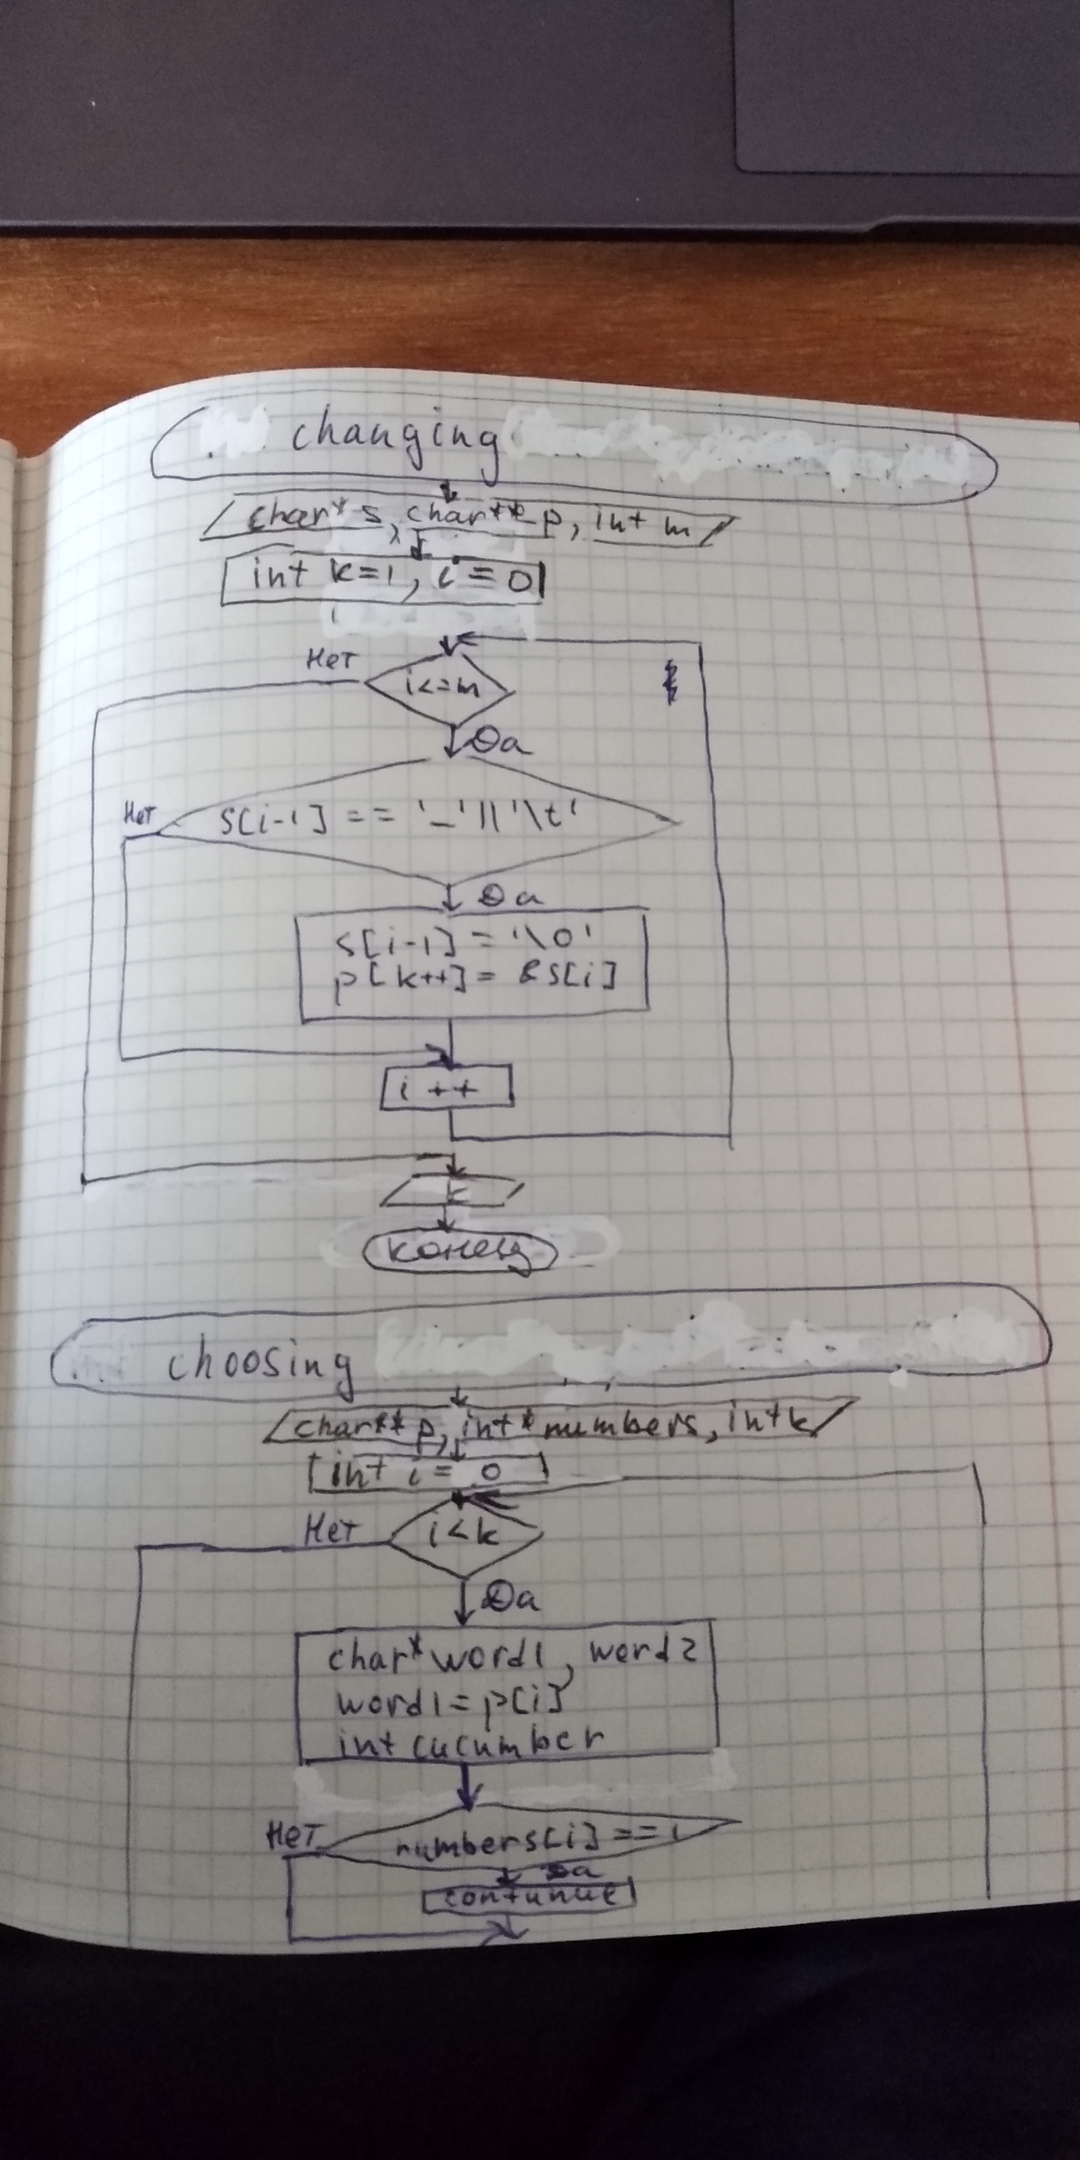 changing
char* s, char** p, int m
int k=1, i = 0
Нет
i<=m
Да
Нет
s[i-1] == '_'||'\t'
Да
s[i-1] = '\0'
p[k++] = &s[i]
i ++
k
конец
choosing
char** p, int* numbers, int k
int i = 0
Нет
i<k
Да
char* word1, word2
word1=p[i]
int cucumber
Нет
numbers[i] == 1
Да
contunue